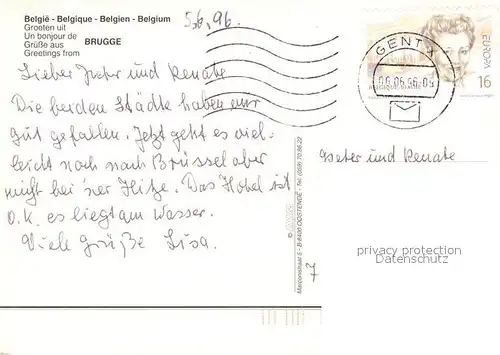 België - Belgique - Belgien - Belgium
Groeten uit
Un bonjour de
Grüße aus
Greetings from
BRUGGE
5.6.96.
Lieber Peter und Renate
Die beiden Städte haben mir
gut gefallen. Jetzt geht es viel-
leicht noch nach Brüssel aber
nicht bei 'ner Hitze. Das Hotel ist
O.K. es liegt am Wasser.
Viele Grüße Lisa.
GENT X
06.06.96-09
EUROPA
16
Peter und Renate
privacy protection
Datenschutz
Marconistraat 5 - B-8400 OOSTENDE - Tel. (059) 70.86.22
7